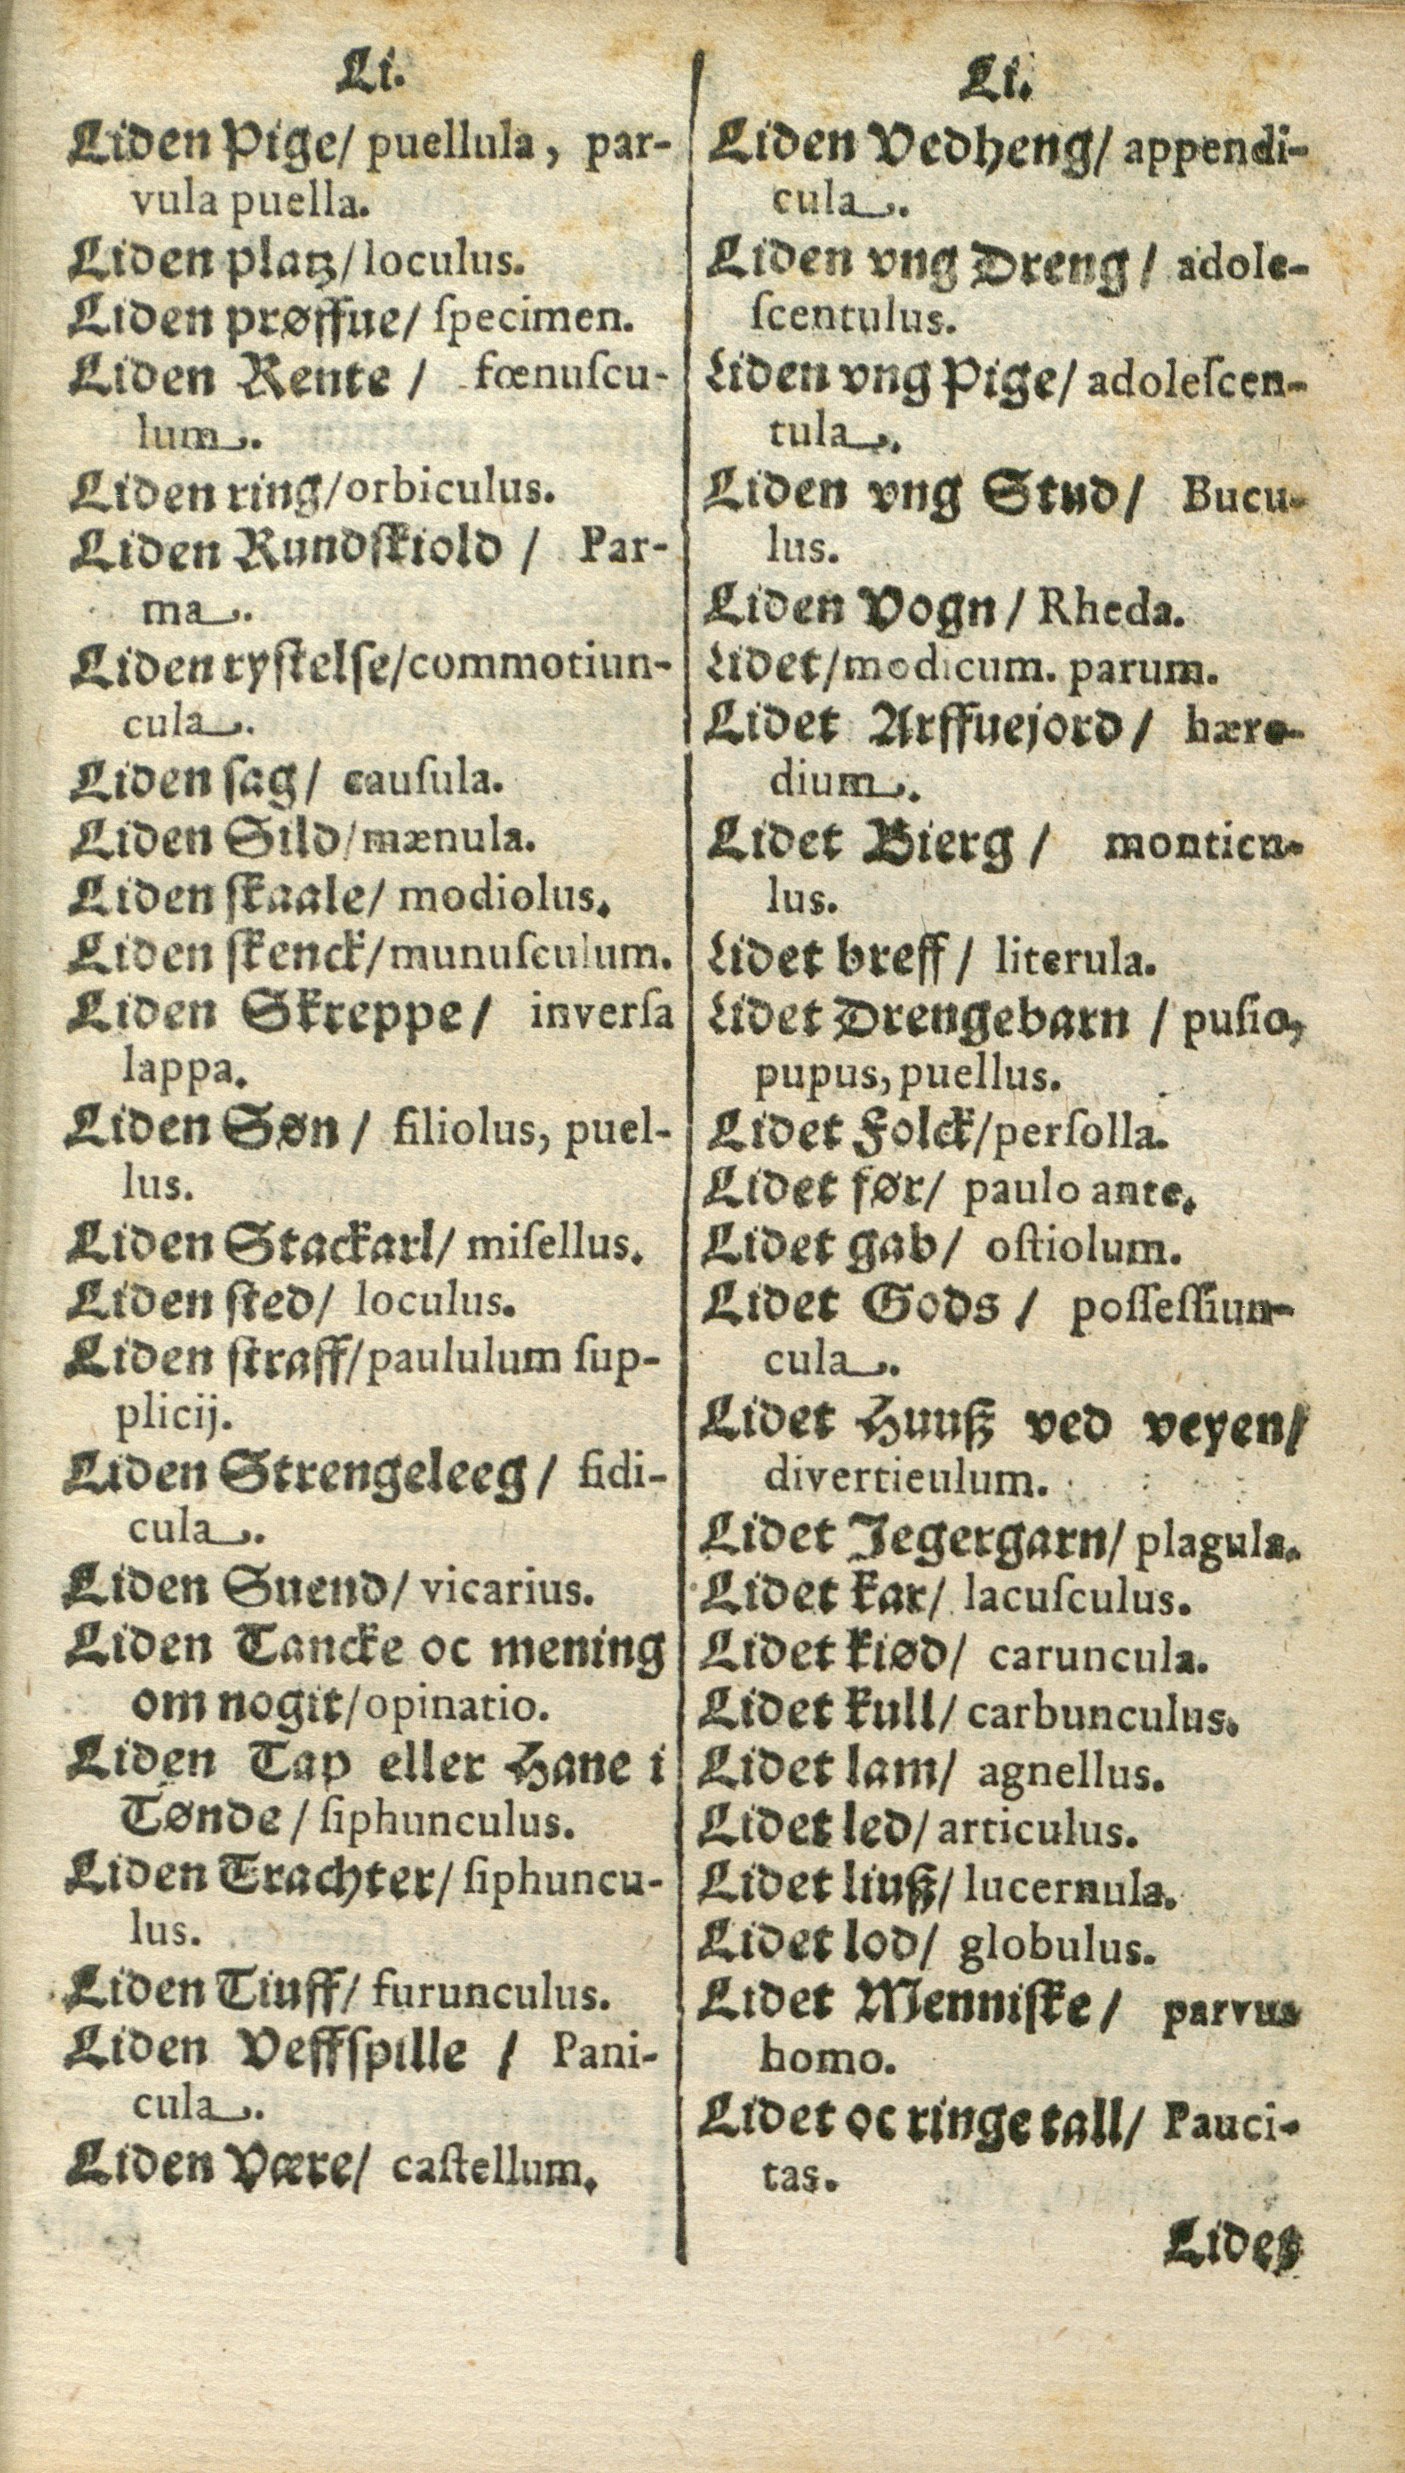 Li.
Liden Pige/ puellula, par-
vula puella.
Liden platz/ loculus.
Liden prøffue/ ſpecimen.
Liden Rente / fœnuſcu-
lum.
Liden ring/ orbiculus.
Liden Rundſkiold / Par-
ma.
Liden ryſtelſe/ commotiun-
cula.
Liden ſag/ cauſula.
Liden Sild/ mænula.
Liden ſkaale/ modiolus.
Liden ſkenck/ munuſculum.
Liden Skreppe/ inverſa
lappa.
Liden Søn/ filiolus, puel-
lus.
Liden Stackarl/ miſellus.
Liden ſted/ loculus.
Liden ſtraff/ paululum ſup-
plicij.
Liden Strengeleeg/ fidi-
cula.
Liden Suend/ vicarius.
Liden Tancke oc mening
om nogit/ opinatio.
Liden Tap eller Hane i
Tønde/ ſiphunculus.
Liden Trachter/ ſiphuncu-
lus.
Liden Tiuff/ furunculus.
Liden Veffſpille / Pani-
cula.
Liden Være/ caſtellum.
Li.
Liden Vedheng/ appendi-
cula.
Liden vng Dreng/ adole-
ſcentulus.
Liden vng Pige/ adoleſcen-
tula.
Liden vng Stud/ Bucu-
lus.
Liden Vogn/ Rheda.
Lidet/ modicum. parum.
Lidet Arffuejord/ hære-
dium.
Lidet Bierg/ monticu-
lus.
Lidet breff/ literula.
Lidet Drengebarn / puſio,
pupus, puellus.
Lidet Folck/ perſolla.
Lidet før/ paulo ante.
Lidet gab/ oſtiolum.
Lidet Gods / poſſeſſiun-
cula.
Lidet Huuß ved veyen/
divertieulum.
Lidet Jegergarn/ plagula.
Lidet kar/ lacuſculus.
Lidet kiød/ caruncula.
Lidet kull/ carbunculus.
Lidet lam/ agnellus.
Lidet led/ articulus.
Lidet liuß/ lucernula.
Lidet lod/ globulus.
Lidet Menniſke/ parvus
homo.
Lidet oc ringe tall/ Pauci-
tas.
Lidet